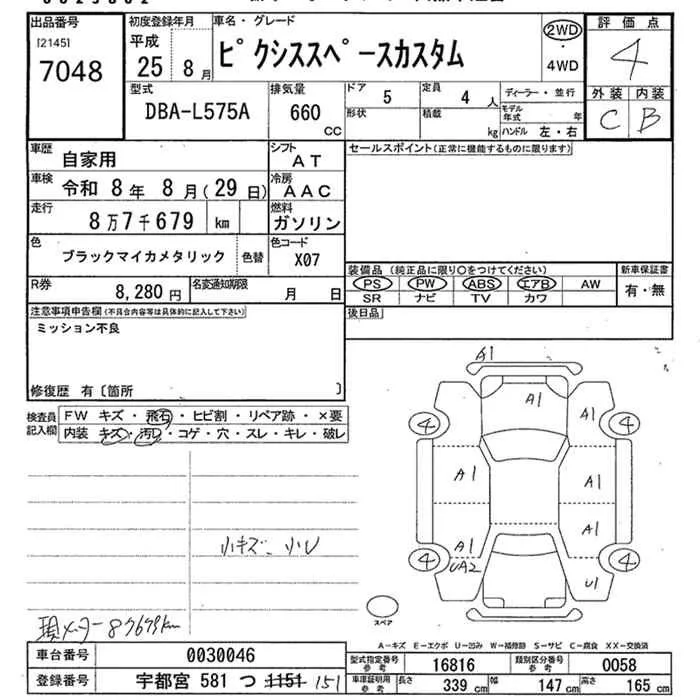 出品番号
[2145]
7048
初度登録年月
平成
25年 8月
車名・グレード
ピクシススペースカスタム
2WD
・
4WD
評価点
4
外装 内装
C B
型式
DBA-L575A
排気量
660
CC
ドア
5
定員
4人
形状
積載
kg
ディーラー・並行
モデル年式 年
ハンドル 左・右
車歴
自家用
シフト
AT
車検
令和 8年 8月(29日)
冷房
AAC
走行
8万7千679 km
燃料
ガソリン
色
ブラックマイカメタリック
色替
色コード
X07
R券
8,280円
名変通知期限
月 日
セールスポイント(正常に機能するものに限ります)
装備品 (純正品に限り○をつけてください)
PS PW ABS エアB AW
SR ナビ TV カワ
新車保証書
有・無
後日品
注意事項申告欄(不具合内容等は具体的に記入して下さい)
ミッション不良
修復歴 有〔箇所 〕
検査員記入欄
FW キズ・飛石・ヒビ割・リペア跡・×要
内装 キズ・汚レ・コゲ・穴・スレ・キレ・破レ
小キズ、小U
現メーター 87679km
A1
A1
A1
4
4
A1
A1
A1
A1
UA2
4
4
U1
スペア
A-キズ E-エクボ U-凹み W-補修跡 S-サビ C-腐食 XX-交換済
車台番号
0030046
登録番号
宇都宮 581 つ 1151 151
型式指定番号参考
16816
類別区分番号参考
0058
車庫証明用参考
長さ 339cm
幅 147cm
高さ 165cm